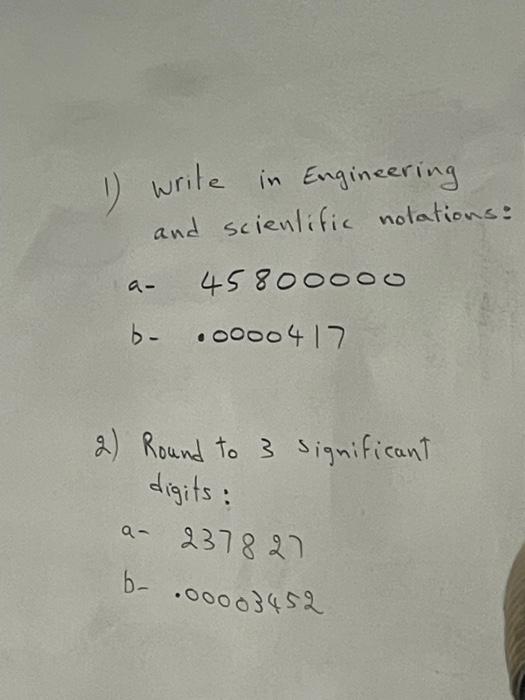 1) write in Engineering
and scientific notations:
a- 45800000
b- .0000417
2) Round to 3 significant
digits:
a- 237827
b- .00003452